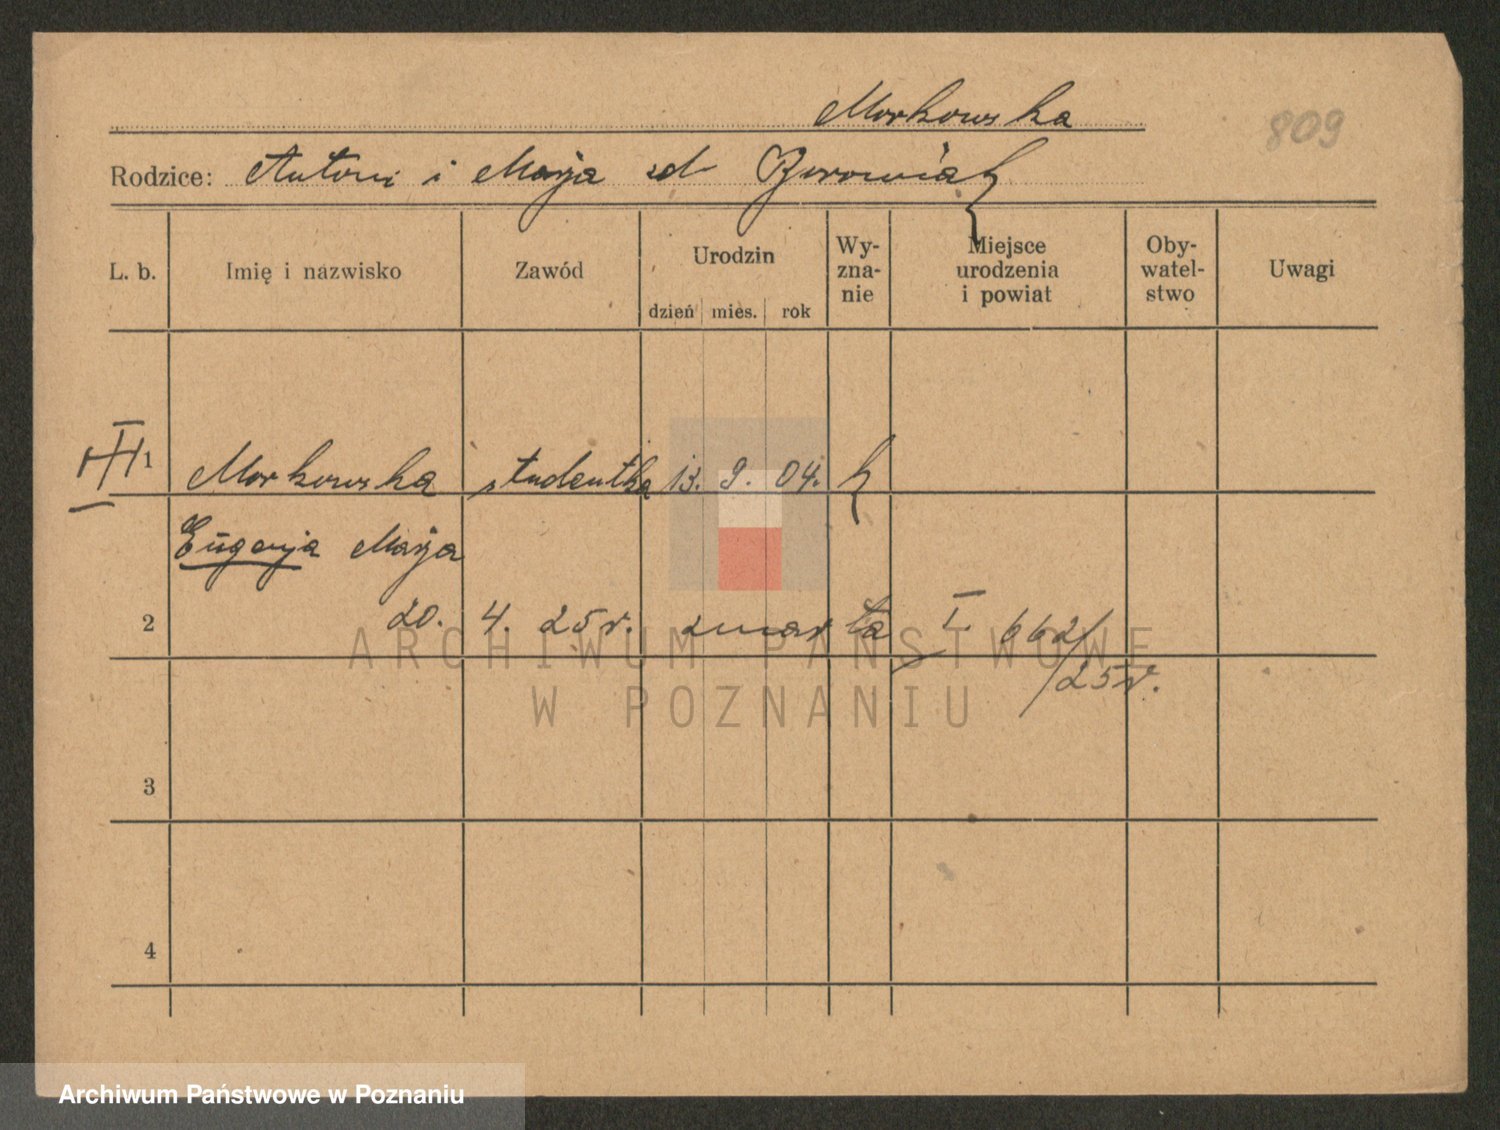 Morkowska
809
Rodzice: Antoni i Marja zd Borowiak
L. b. Imię i nazwisko Zawód Urodzin dzień mies. rok Wy-zna-nie Miejsce urodzenia i powiat Oby-watel-stwo Uwagi
1 Morkowska studentka 13. 9. 04. k
Eugenja Marja
2 20. 4. 25 r. zmarła I. 662/
25 r.
3
4
ARCHIWUM PAŃSTWOWE
W POZNANIU
Archiwum Państwowe w Poznaniu